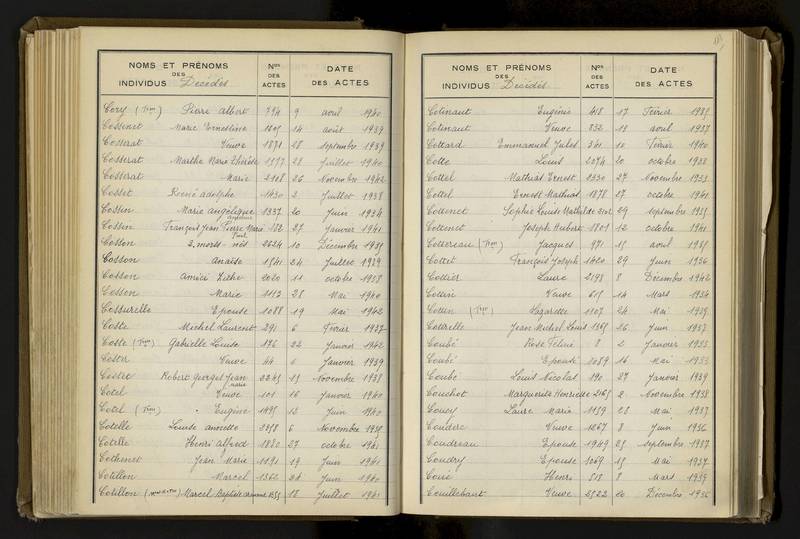 NOMS ET PRÉNOMS
DES
INDIVIDUS Décédés
Nos
DES
ACTES
DATE
DES ACTES
Pierre Albert 794 9 avril 1940
Cossenet Marie Ernestine 14 août 1939
Cosserat Veuve 1871 18 septembre 1939
Cosserat Marthe Marie Thérèse 1577 28 Juillet 1940
Cosserat Marie 2108 26 Novembre 1942
Cosset René Adolphe 1430 2 Juillet 1938
Cossin Marie Angélique 1337 20 Juin 1934
Cossin François Jean Pierre Marie 182 27 Janvier 1941
Cosson 2 morts nés 2624 10 Décembre 1935
Cosson Anaïse 1541 24 Juillet 1939
Cosson 2020 11 octobre 1938
Cosson Marie 1112 28 Mai 1940
Cossurelle Epouse 1088 19 Mai 1942
Coste Michel Laurent 291 6 Février 1937
Coste (Vve) Gabrielle Louise 176 22 Janvier 1942
Veuve 44 6 Janvier 1939
Robert Georges Jean Marie 2245 15 Novembre 1938
Cotel Veuve 101 16 Janvier 1940
Cotel Eugène 1495 12 Juin 1940
Cotelle Louise 6 Novembre 1935
Cotelle Henri Alfred 1820 27 octobre 1941
Cothenet Jean Marie 1191 19 Juin 1941
Cotillon Marcel 1362 24 Juin 1940
Cotillon Marcel Baptiste 18 Juillet 1941
NOMS ET PRÉNOMS
DES
INDIVIDUS Décédés
Nos
DES
ACTES
DATE
DES ACTES
Cotinaut Eugénie 418 17 Février 1935
Cotinaut Veuve 832 18 avril 1937
Cottard Emmanuel Jules 361 10 Février 1940
Cotte Louis 2074 20 octobre 1938
Cottel Mathias Ernest 2330 27 Novembre 1933
Cottel Ernest Mathias 1878 27 octobre 1941
Cottenet Sophie Louise Mathilde 29 septembre 1935
Cottenet Joseph Hubert 1801 12 octobre 1941
Cottereau Jacques 971 15 avril 1935
Cottet François Joseph 1420 29 Juin 1936
Cottier Laure 2198 8 Décembre 1942
Cottin Veuve 615 14 Mars 1934
Cottin Lazarette 1107 24 Mai 1939
Cottrelle Jean Michel Louis 26 Juin 1937
Coubé Rose 8 2 Janvier 1935
Coubé Epouse 1059 16 Mai 1935
Coubé Louis Nicolas 190 27 Janvier 1939
Couchot Marguerite Henriette 2165 2 Novembre 1938
Coucy Laure Marie 1159 28 Mai 1937
Couderc Veuve 1267 8 Juin 1936
Coudreau Epouse 1749 25 septembre 1937
Coudry Epouse 1069 15 Mai 1937
Henri 515 8 Mars 1939
Couillebaut Veuve 2522 20 Décembre 1936